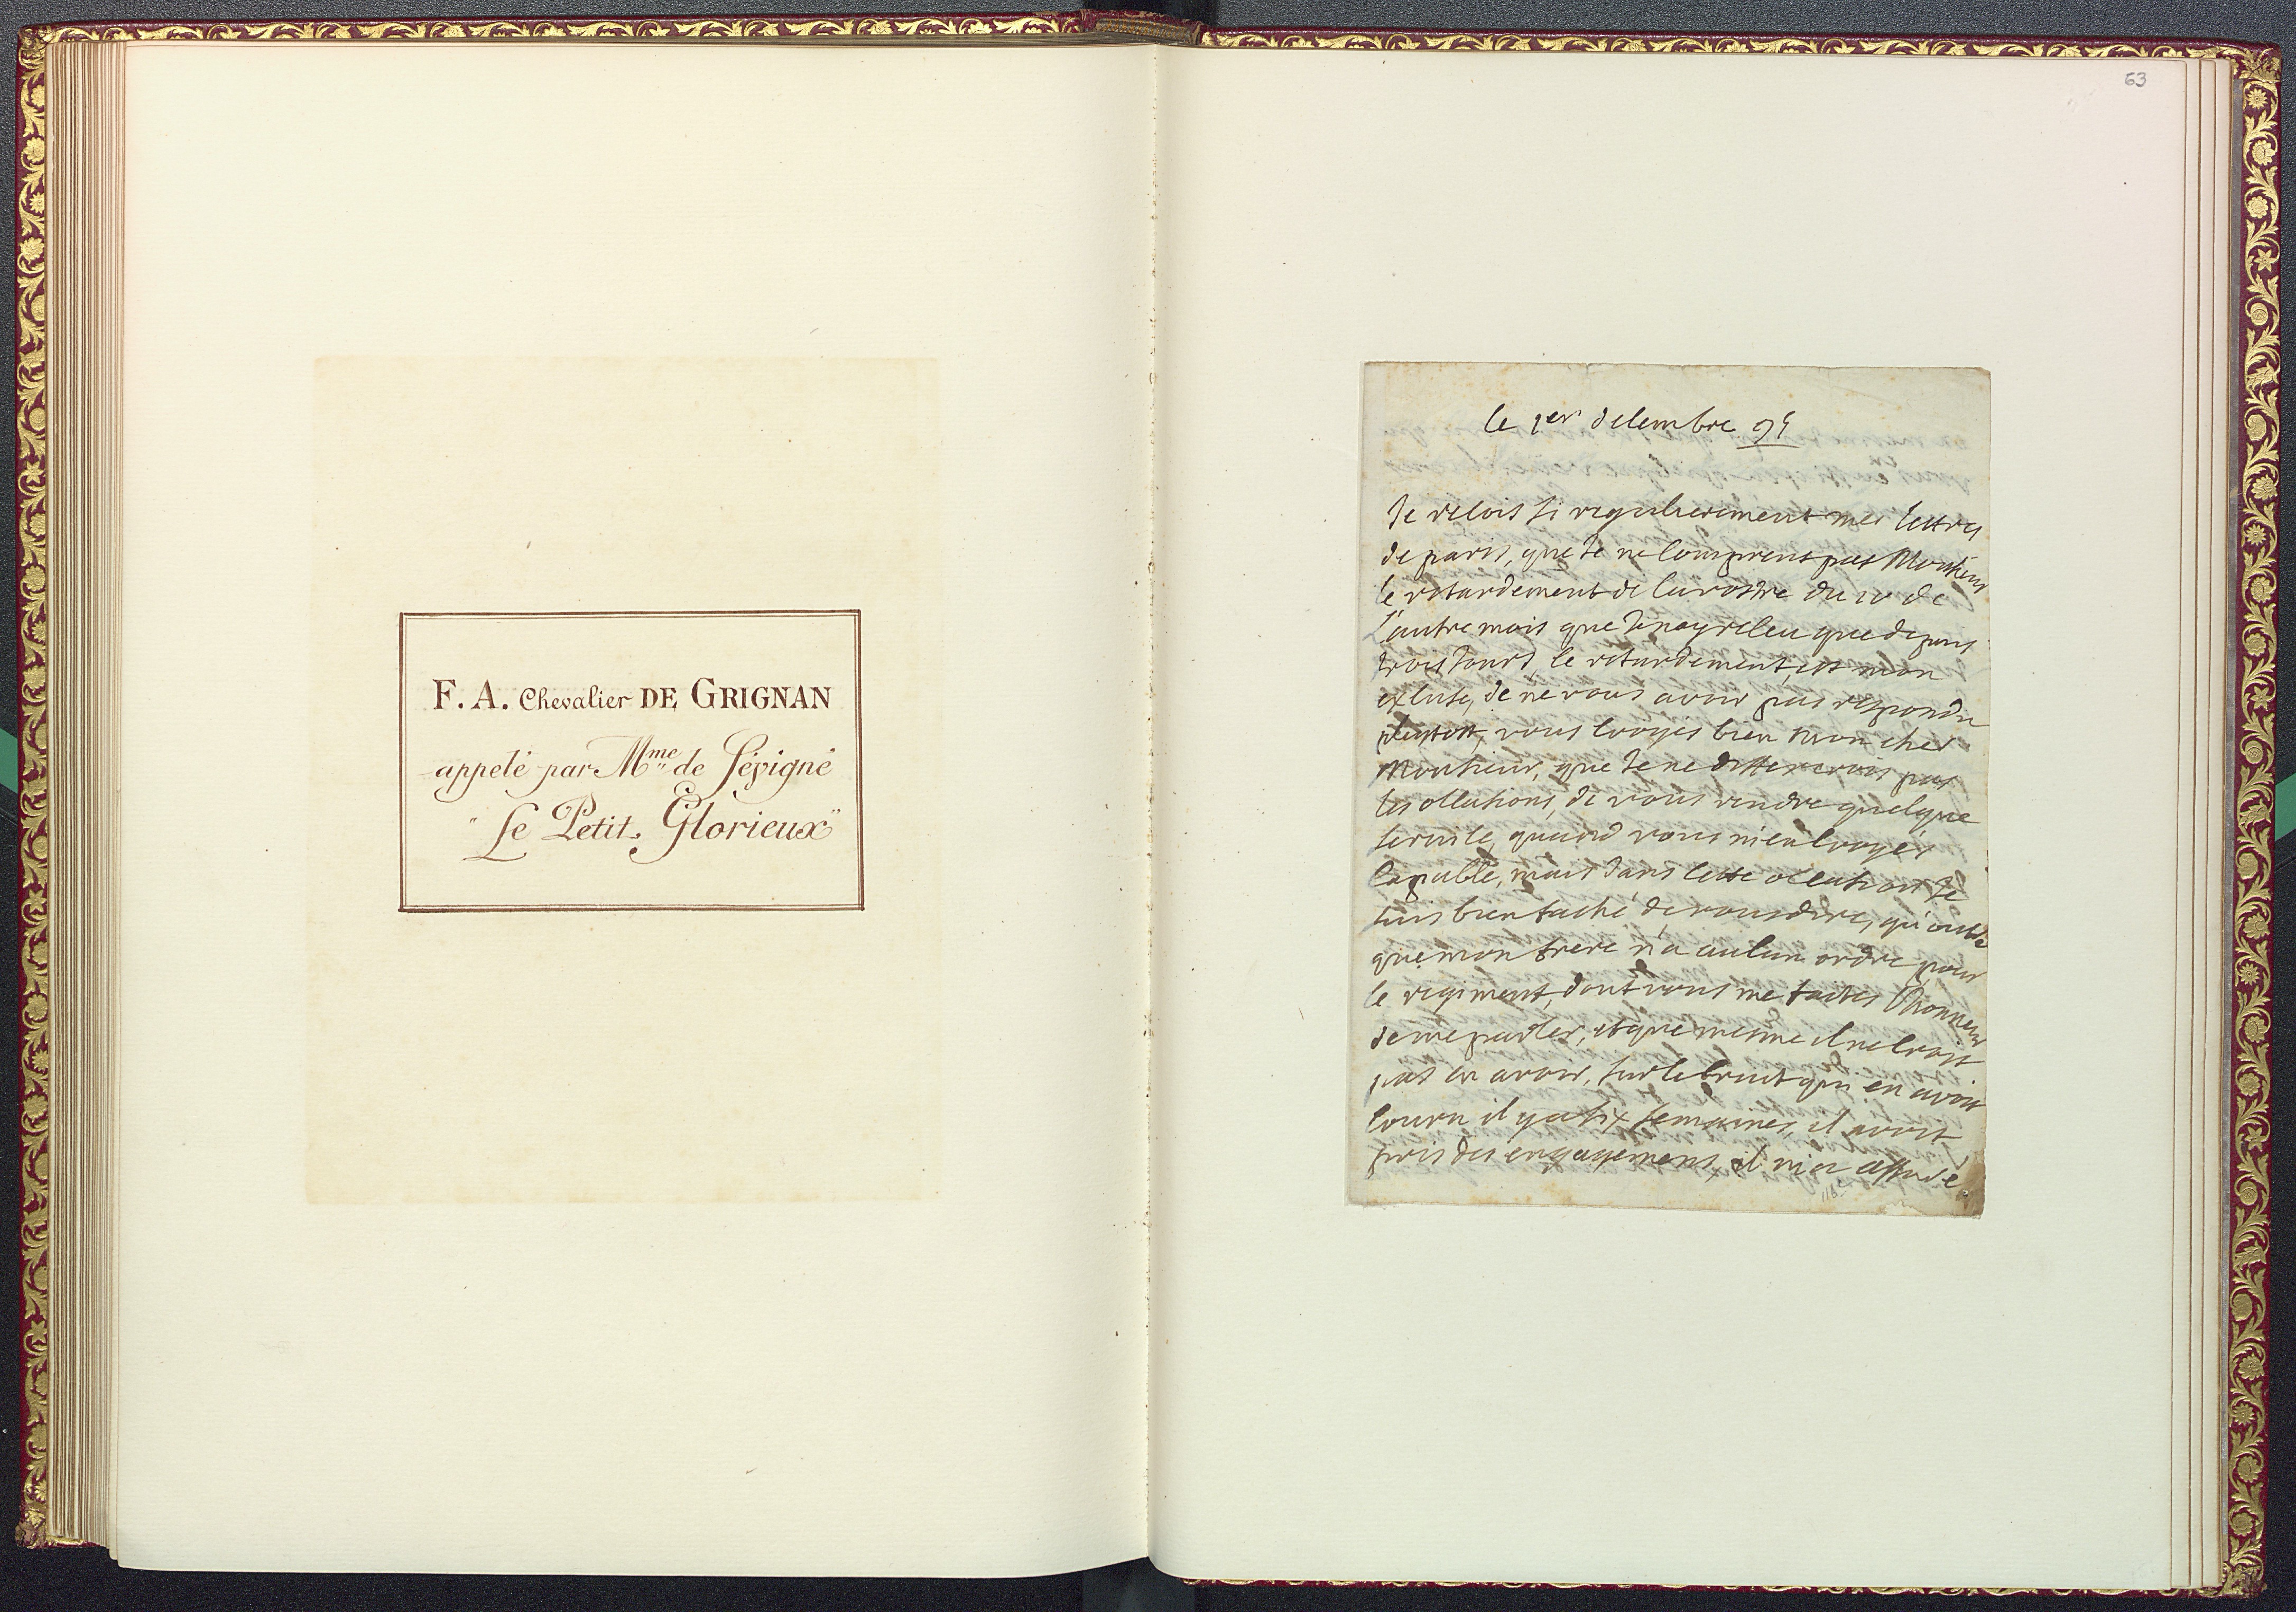 F. A. Chevalier DE GRIGNAN
appelé par Mme de Sévigné
"Le Petit Glorieux"
63
le 1er decembre 95
Je recois si regulierement mes lettres
de paris, que Je ne comprens pas Monsieur
le retardement de la vostre du 10 de
l'autre mois que Je n'ay receu que depuis
trois Jours, le retardement, est mon
excuse, de ne vous avoir pas respondu
plustost, vous croyés bien mon cher
Monsieur, que Je ne differerois pas
les occasions, de vous rendre quelque
service, quand vous m'en croyés
capable, mais dans cette occasion Je
suis bien faché de vous dire, qu'outre
que mon frere n'a aucun ordre pour
le regiment, dont vous me faites l'honneur
de me parler, et que mesme il ne croit
pas en avoir, sur le bruit qui en avoit
couru il y a six semaines, il avoit
pris des engagemens, il m'a assuré